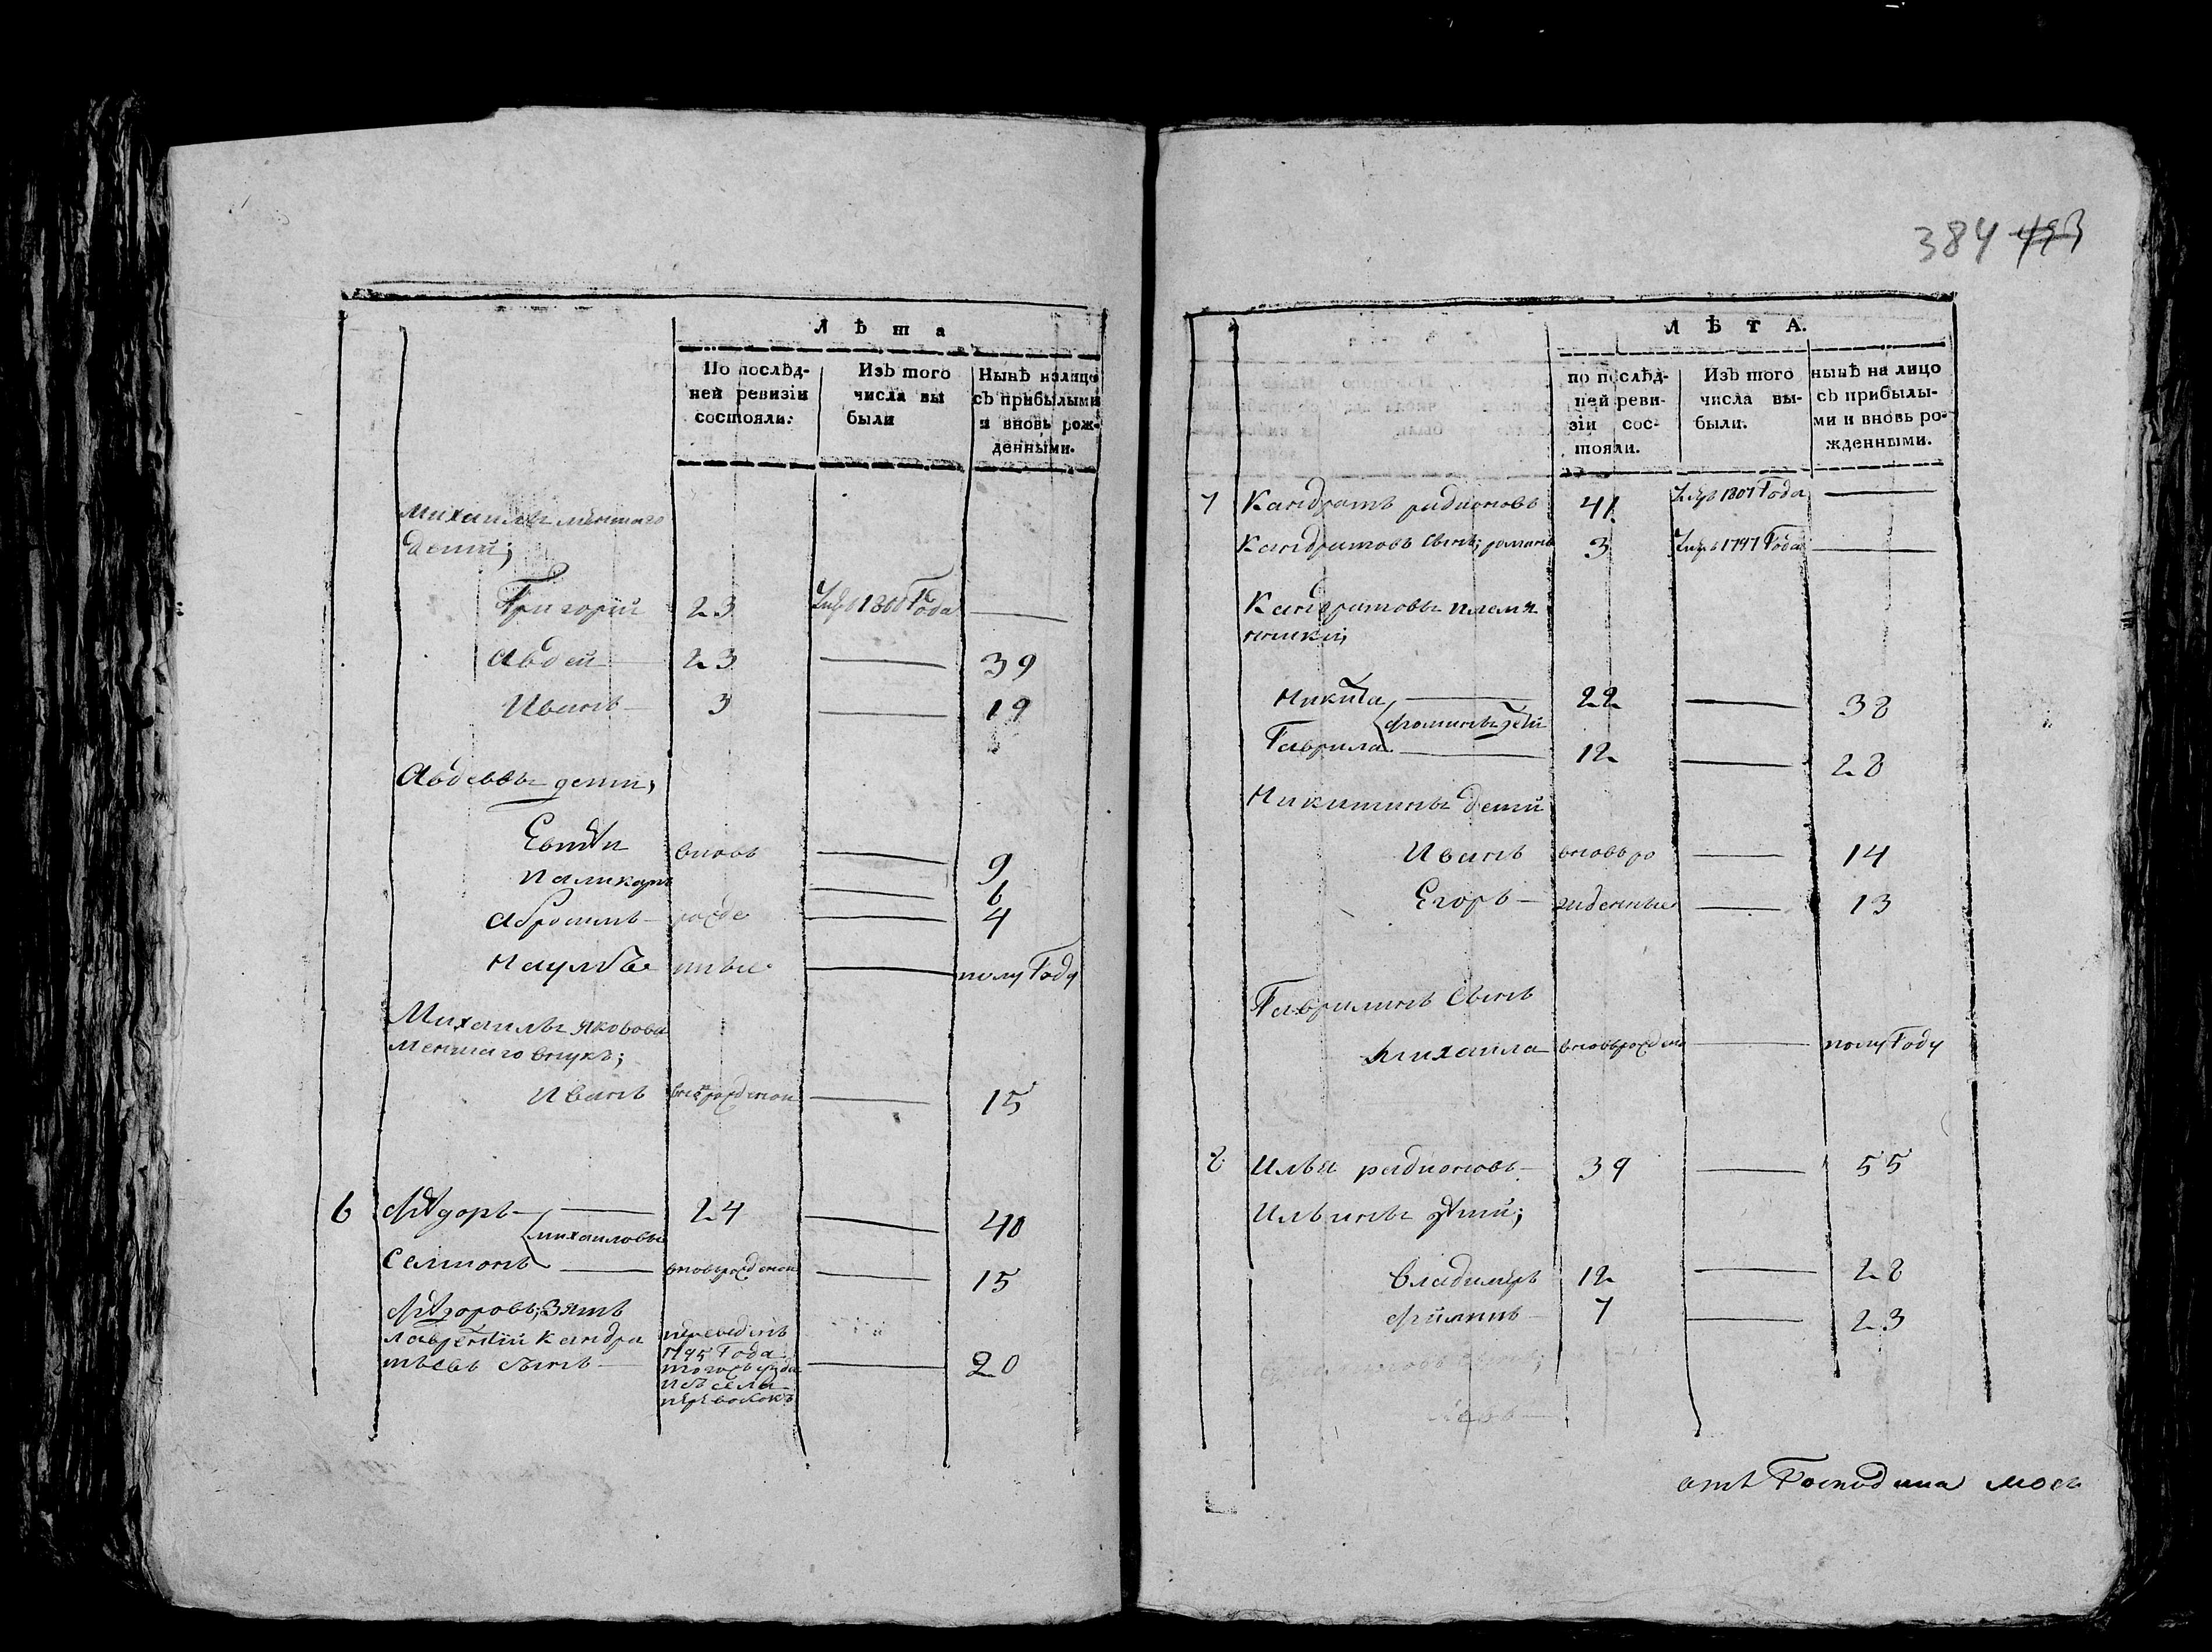 Лѣта
По послѣд-
ней ревизіи
состояли:
Изъ того
числа вы
были
Нынѣ налицо
съ прибылыми
и вновь рож-
денными.
Михаилы меншаго
дети;
Григорий 23 1800 Года —
Авдей — 23 — 39
Иванъ — 3 — 19
Авдеевы дети;
Евтѣи вновь — 9
Паликарпъ — 6
Абросимъ — рожде — 4
Наумъ ные — полу Году
Михаилы Яковова
Меншаго внукъ;
Иванъ вновърожденои — 15
6 Фѣдоръ — 24 — 40
михаиловы
Семионъ — вновьрожденои — 15
Фѣдоровъ; Зять
Лаврентий Кандра
тьевъ сынъ — — 20
переведенъ
1795 Года
тогожъ уезда
изъ села
384 493
ЛѢТА.
по послѣд-
ней реви-
зіи сос-
тояли.
Изъ того
числа вы-
были.
нынѣ на лицо
съ прибылы-
ми и вновь ро-
жденными.
7 Кандратъ радионовъ 41 1807 Года —
Кандратовъ Сынъ; романъ 3 1797 Года —
Кандратовы племя
нники;
Никита — 22 — 38
фомины дети
Гаврила — 12 — 28
Никитины дети
Иванъ вновьро — 14
Егоръ — жденные — 13
Гаврилинъ Сынъ
Михаила вновьрожденъ — полу Году
8 Илья радионовъ — 39 — 55
Ильины дѣти;
Владимиръ 12 — 28
Филипъ — 7 — 23
отъ Господина моег